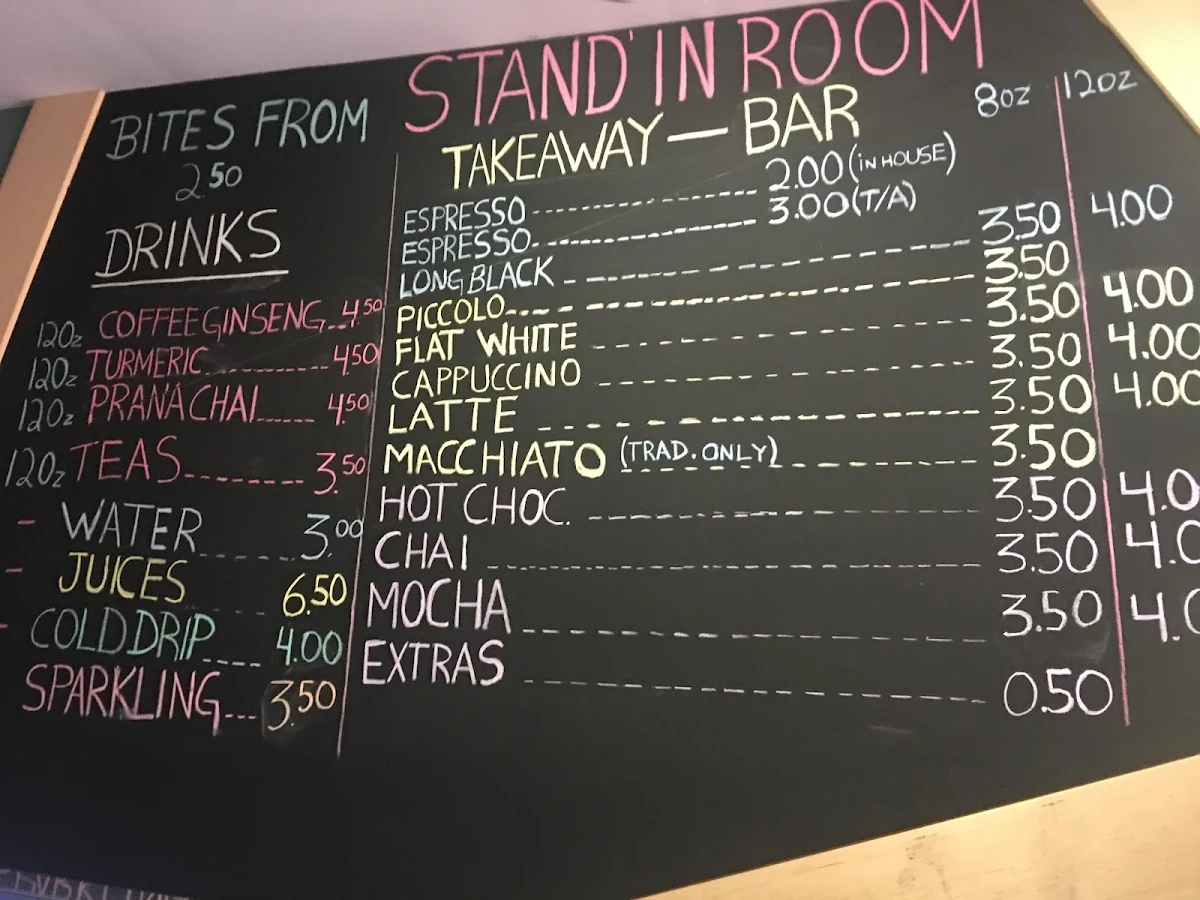 STAND' IN ROOM
BITES FROM
2.50
DRINKS
12oz COFFEE GINSENG 4.50
12oz TURMERIC 4.50
12oz PRANA CHAI 4.50
12oz TEAS 3.50
- WATER 3.00
- JUICES 6.50
- COLD DRIP 4.00
SPARKLING 3.50
TAKEAWAY — BAR 8oz 12oz
ESPRESSO 2.00 (IN HOUSE)
ESPRESSO 3.00 (T/A)
LONG BLACK 3.50 4.00
PICCOLO 3.50
FLAT WHITE 3.50 4.00
CAPPUCCINO 3.50 4.00
LATTE 3.50 4.00
MACCHIATO (TRAD. ONLY) 3.50
HOT CHOC. 3.50 4.0
CHAI 3.50 4.0
MOCHA 3.50 4.0
EXTRAS 0.50